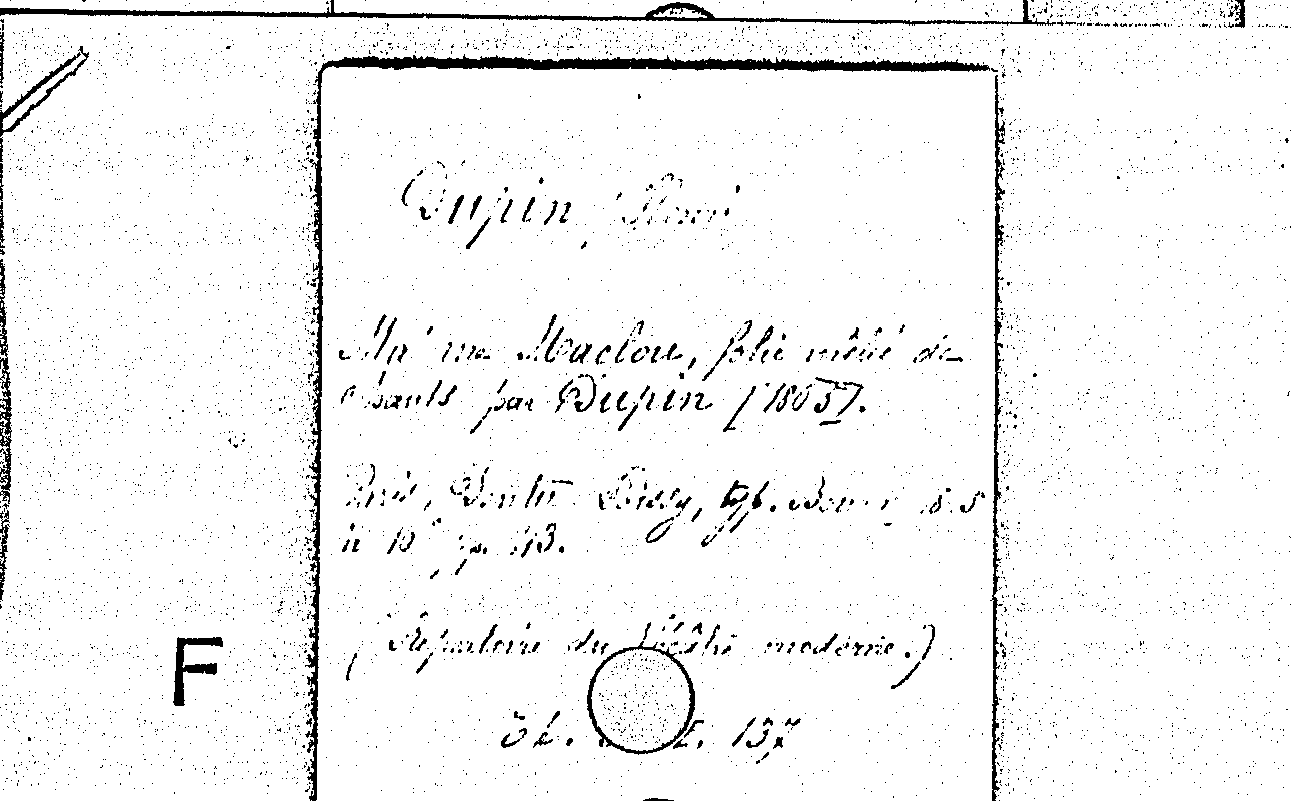 Dupin, Henri
Ma'me Maclou, folie mêlée de
chants par Dupin [1805].
Paris, Dentu Lissy, typ. 
in 18° p. 113.
(Répertoire du théâtre moderne.)
F
137